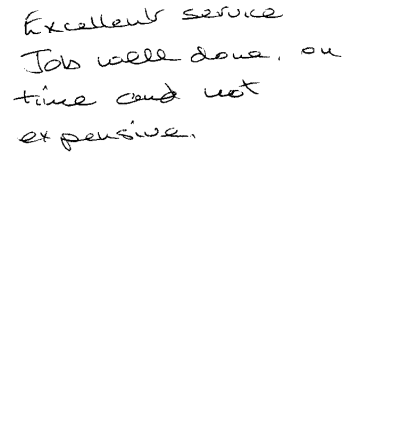 Excellent service
Job well done, on
time and not
expensive.